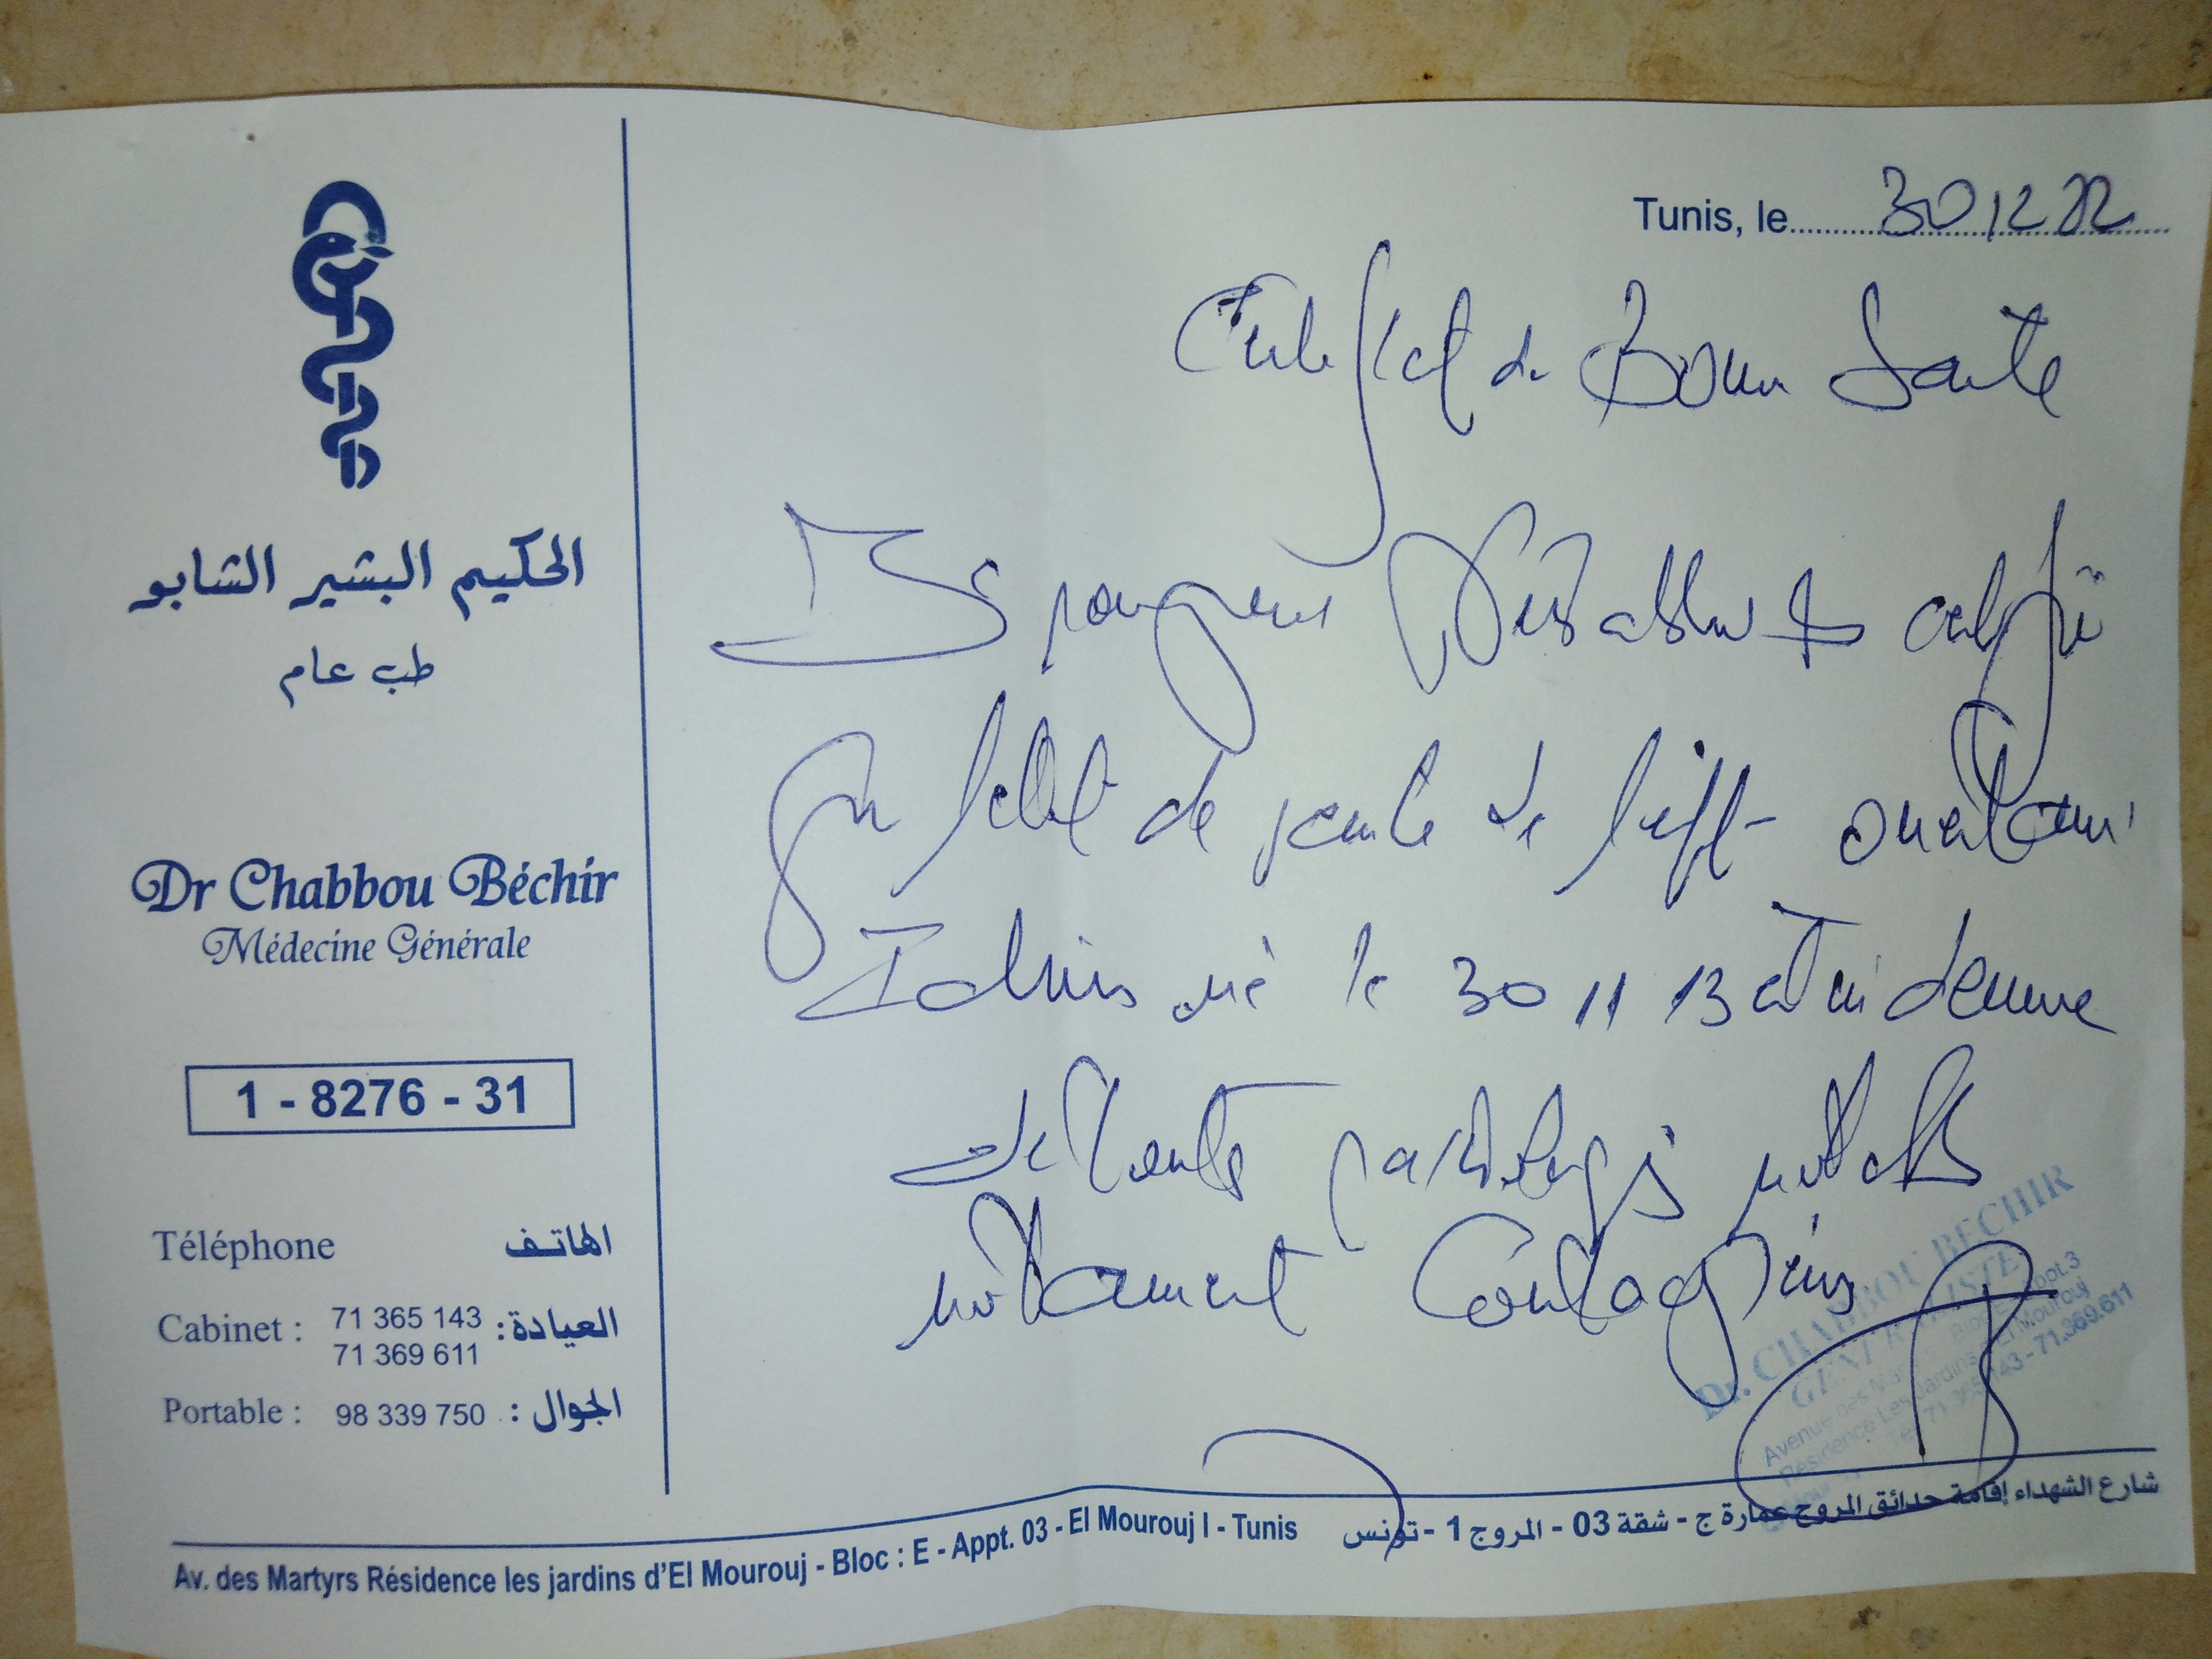 الحكيم البشير الشابو
طب عام
Dr Chabbou Béchir
Médecine Générale
1 - 8276 - 31
Téléphone الهاتف
Cabinet : 71 365 143 العيادة:
71 369 611
Portable : 98 339 750 الجوال :
Tunis, le 30 12 22
Certificat de Bonne Santé
certifie
que l'état de santé de
Idriss né le 30 11 13 est indemne
de toute pathologie
notamment Contagieuse
Dr. CHABBOU BECHIR
GENERALISTE
Avenue des Martyrs
Résidence Les Jardins El Mourouj
71.369.611
Av. des Martyrs Résidence les jardins d'El Mourouj - Bloc : E - Appt. 03 - El Mourouj I - Tunis
شارع الشهداء إقامة حدائق المروج عمارة ج - شقة 03 - المروج 1 - تونس